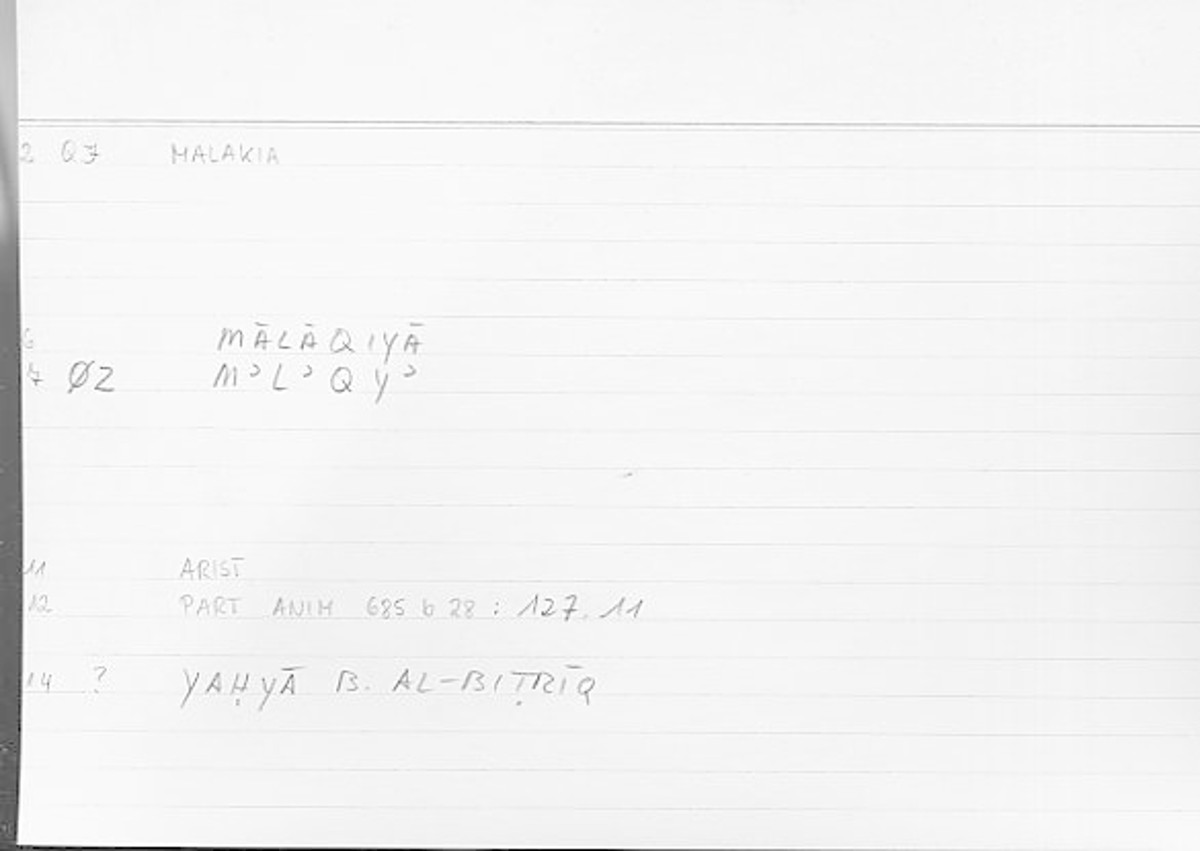 2 Q7 MALAKIA
6 MĀLĀQIYĀ
7 Ø2 MʾLʾQYʾ
11 ARIST
12 PART ANIM 685 b 28 : 127.11
14 ? YAḤYĀ B. AL-BIṬRĪQ